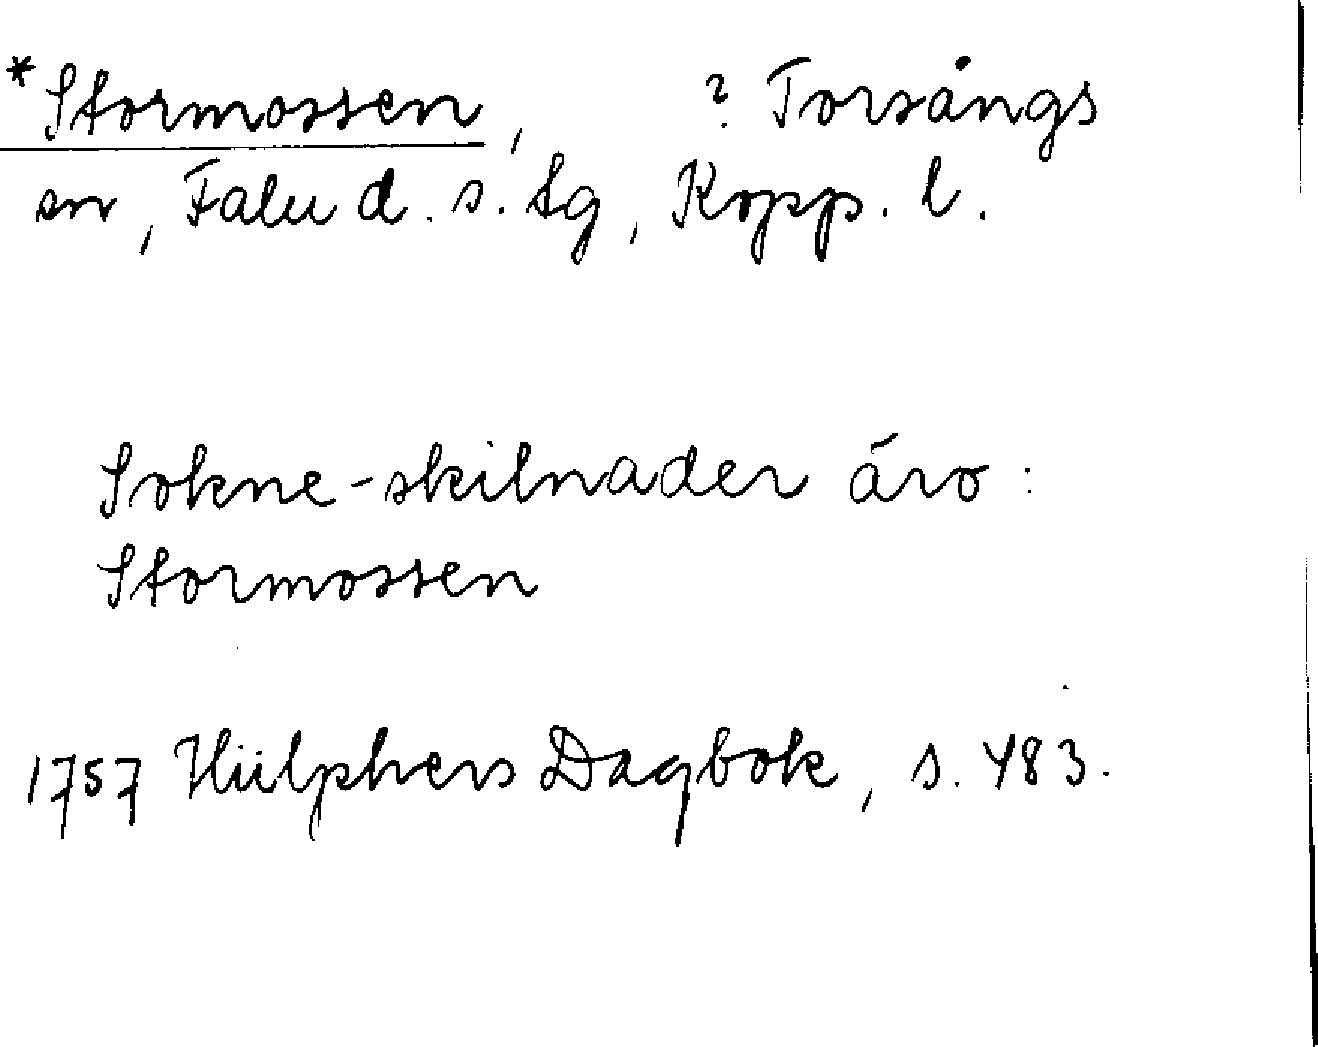 *Stormossen, ? Torsångs
sn, Falu d. s. tg, Kopp. l.
Sokne-skilnader äro:
Stormossen
1757 Hülphers Dagbok, s. 483.